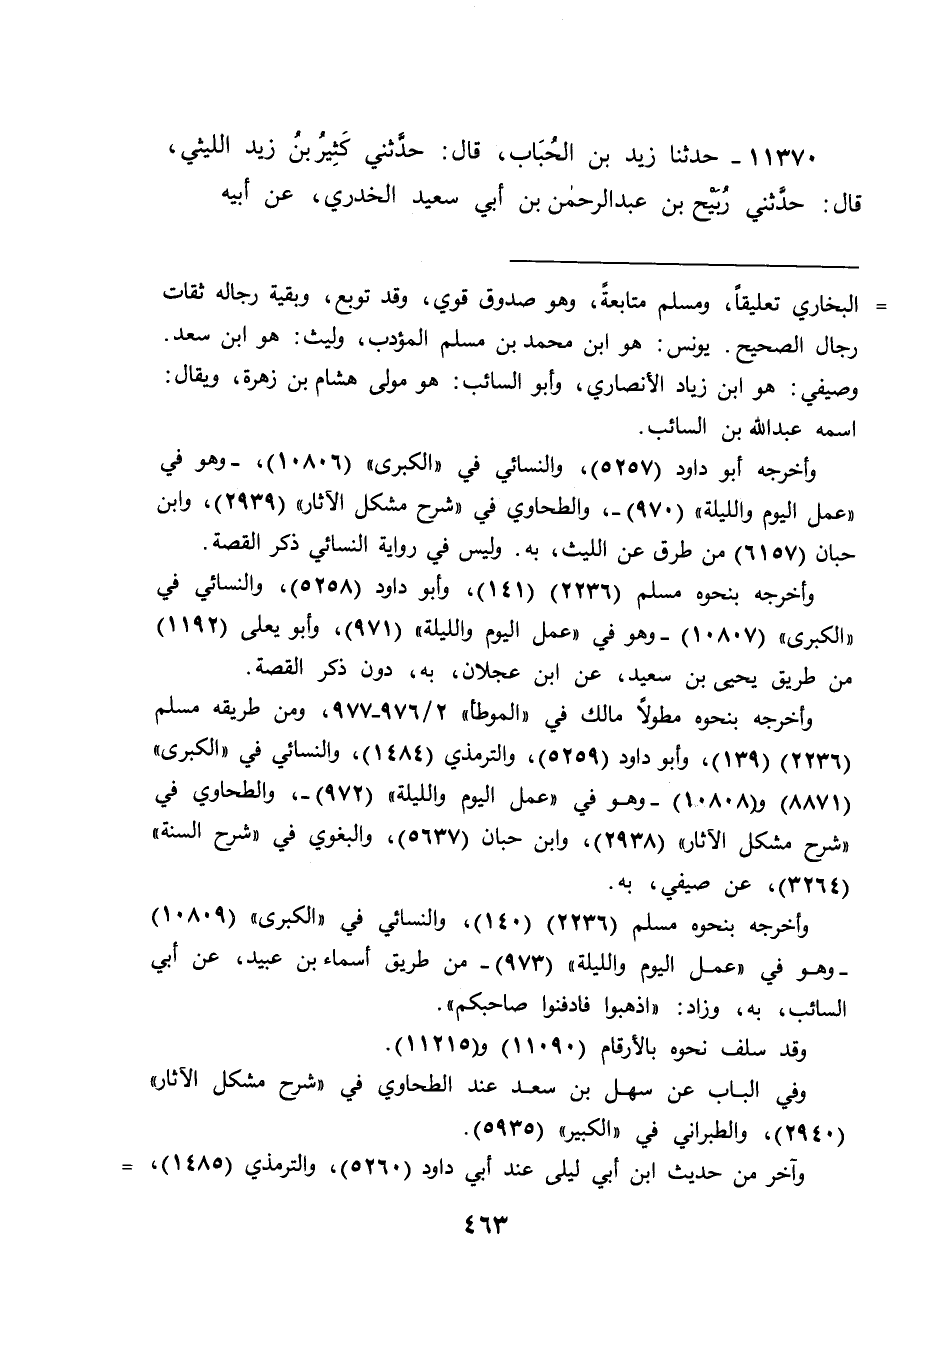 ١١٣٧٠ ـ حدثنا زيد بن الحُبَاب، قال: حدَّثني كَثِيرُ بنُ زيد الليثي،
قال: حدَّثني رُبَيْح بن عبدالرحمٰن بن أبي سعيد الخدري، عن أبيه
= البخاري تعليقاً، ومسلم متابعةً، وهو صدوق قوي، وقد توبع، وبقية رجاله ثقات
رجال الصحيح. يونس: هو ابن محمد بن مسلم المؤدب، وليث: هو ابن سعد.
وصيفي: هو ابن زياد الأنصاري، وأبو السائب: هو مولى هشام بن زهرة، ويقال:
اسمه عبدالله بن السائب.
وأخرجه أبو داود (٥٢٥٧)، والنسائي في «الكبرى» (١٠٨٠٦)، ـ وهو في
«عمل اليوم والليلة» (٩٧٠) ـ، والطحاوي في «شرح مشكل الآثار» (٢٩٣٩)، وابن
حبان (٦١٥٧) من طرق عن الليث، به. وليس في رواية النسائي ذكر القصة.
وأخرجه بنحوه مسلم (٢٢٣٦) (١٤١)، وأبو داود (٥٢٥٨)، والنسائي في
«الكبرى» (١٠٨٠٧) ـ وهو في «عمل اليوم والليلة» (٩٧١)، وأبو يعلى (١١٩٢)
من طريق يحيى بن سعيد، عن ابن عجلان، به، دون ذكر القصة.
وأخرجه بنحوه مطولاً مالك في «الموطأ» ٩٧٦/٢ـ٩٧٧، ومن طريقه مسلم
(٢٢٣٦) (١٣٩)، وأبو داود (٥٢٥٩)، والترمذي (١٤٨٤)، والنسائي في «الكبرى»
(٨٨٧١) و(١٠٨٠٨) ـ وهو في «عمل اليوم والليلة» (٩٧٢) ـ، والطحاوي في
«شرح مشكل الآثار» (٢٩٣٨)، وابن حبان (٥٦٣٧)، والبغوي في «شرح السنة»
(٣٢٦٤)، عن صيفي، به.
وأخرجه بنحوه مسلم (٢٢٣٦) (١٤٠)، والنسائي في «الكبرى» (١٠٨٠٩)
ـ وهو في «عمل اليوم والليلة» (٩٧٣) ـ من طريق أسماء بن عبيد، عن أبي
السائب، به، وزاد: «اذهبوا فادفنوا صاحبكم».
وقد سلف نحوه بالأرقام (١١٠٩٠) و(١١٢١٥).
وفي الباب عن سهل بن سعد عند الطحاوي في «شرح مشكل الآثار»
(٢٩٤٠)، والطبراني في «الكبير» (٥٩٣٥).
وآخر من حديث ابن أبي ليلى عند أبي داود (٥٢٦٠)، والترمذي (١٤٨٥)، =
٤٦٣